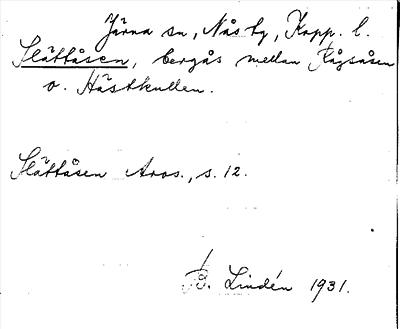 Järna sn, Nås by, Kopp. l.
Slättåsen, bergås mellan Rågsåsen
o. Hästkullen.
Slättåsen Aros., s. 12.
B. Lindén 1931.